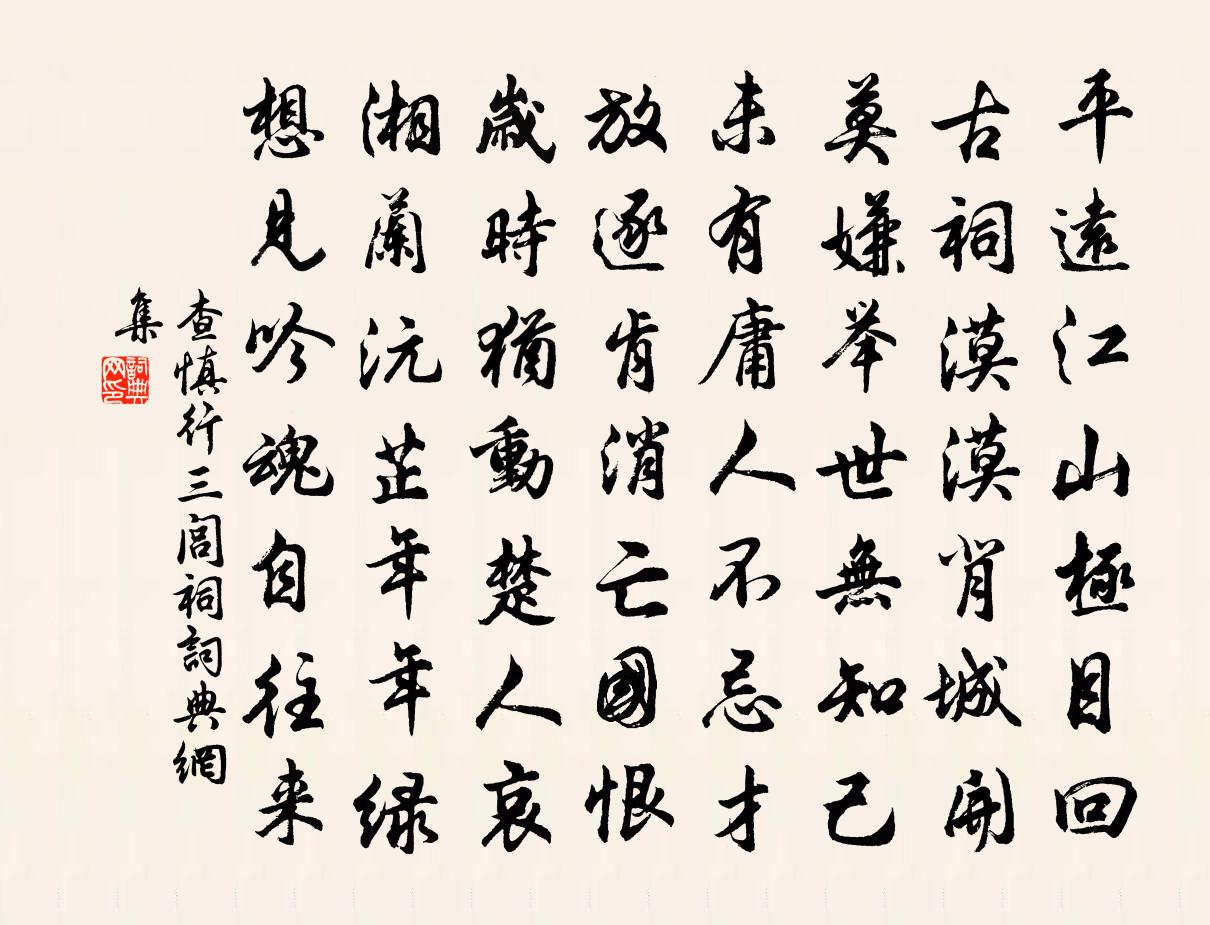 平遠江山極目回
古祠漠漠背城開
莫嫌举世無知己
未有庸人不忌才
放逐肯消亡國恨
歲時猶動楚人哀
湘蘭沅芷年年绿
想見吟魂自往来
查慎行三閭祠詞典網
集
詞典网印